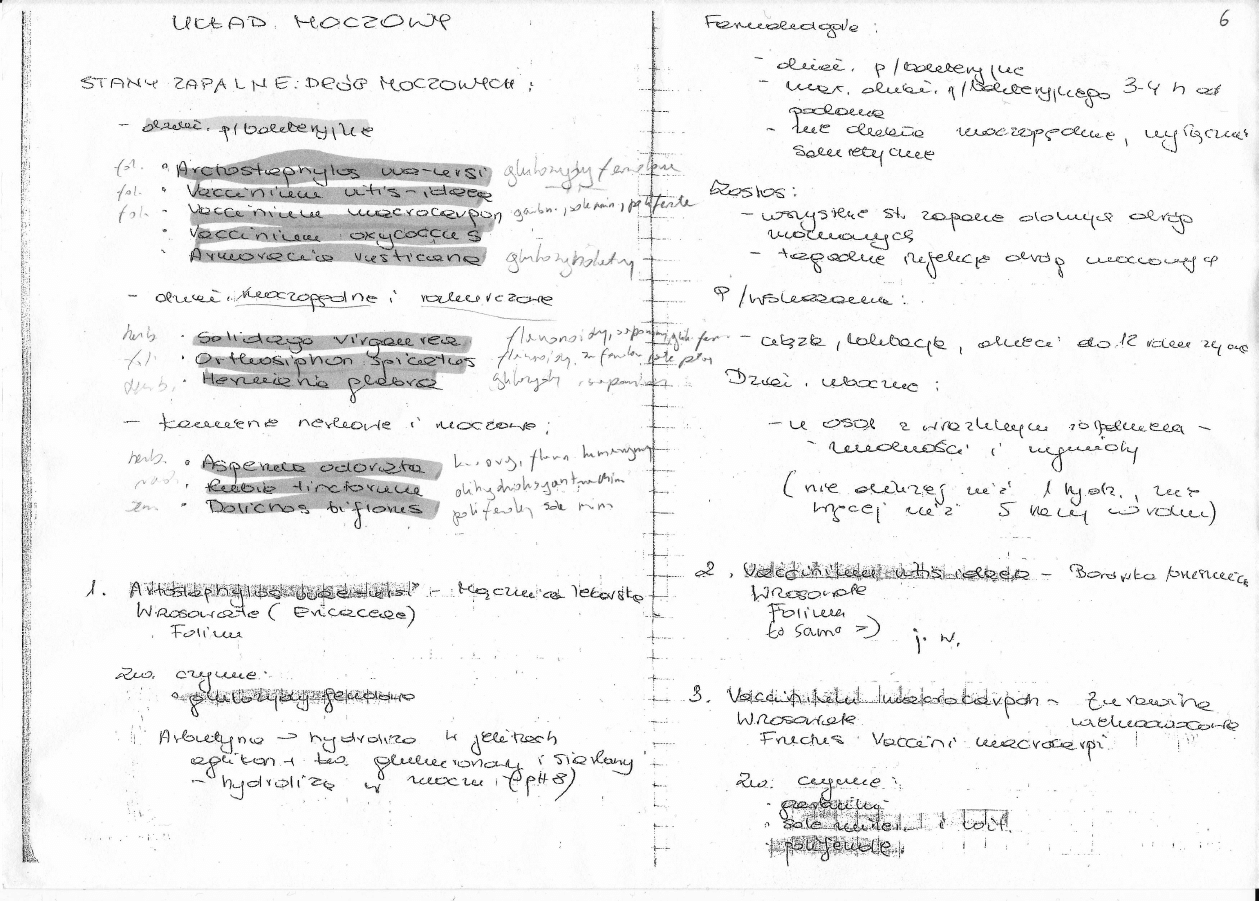 UKŁAD MOCZOWY
STANY ZAPALNE DRÓG MOCZOWYCH:
- dział. p/bakteryjne
fol. • Arctostaphylos uva-ursi glukozydy fenolowe
fol. • Vaccinium vitis-idaea
fol. • Vaccinium macrocarpon garbn., sole min., polifenole
• Vaccinium oxycoccus
• Armoracia rusticana glukozynolaty
- dział. moczopędne i rozkurczowe
herb. • Solidago virgaurea flawonoidy, saponiny, glik. fen.
fol. • Orthosiphon spicatus flawonoidy, sole
• Herniaria glabra glikozydy, saponiny
- kamienie nerkowe i moczowe:
herb. • Asperula odorata flawo. kumaryny
rad. • Rubia tinctorum dihydroksyantrachin
• Dolichos biflorus polifenole sole min
1. Artostaphylos uva ursi - Mącznica lekarska
Wrosowate (Ericaceae)
Folium
Zw. czynne:
• glukozydy fenolowe
Arbutyna → hydroliza w jelitach
aglikon + kw. glukuronowy i siarkowy
- hydroliza w moczu (pH 8)
6
Farmakologia:
- dział. p/bakteryjne
- max. dział. p/bakteryjnego 3-4 h od
podania
- nie działa moczopędnie, wyłącznie
saluretycznie
Zastos:
- wszystkie st. zapalne dolnych dróg
moczowych
- łagodne infekcje dróg moczowych
P/wskazania:
- ciąża, laktacja, dzieci do 12 roku życia
Dział. uboczne:
- u osób z wrażliwym żołądkiem -
- nudności i wymioty
(nie dłużej niż 1 tydz., nie
więcej niż 5 razy w roku)
2. Vaccinium vitis idaea - Borówka brusznica
Wrosowate
Folium
to samo =) j. w.
3. Vaccinium macrocarpon - Żurawina
Wrosowate wielkoowocowa
Fructus Vaccini macrocarpi
Zw. czynne:
• garbniki
• sole miner. i wit.
• polifenole